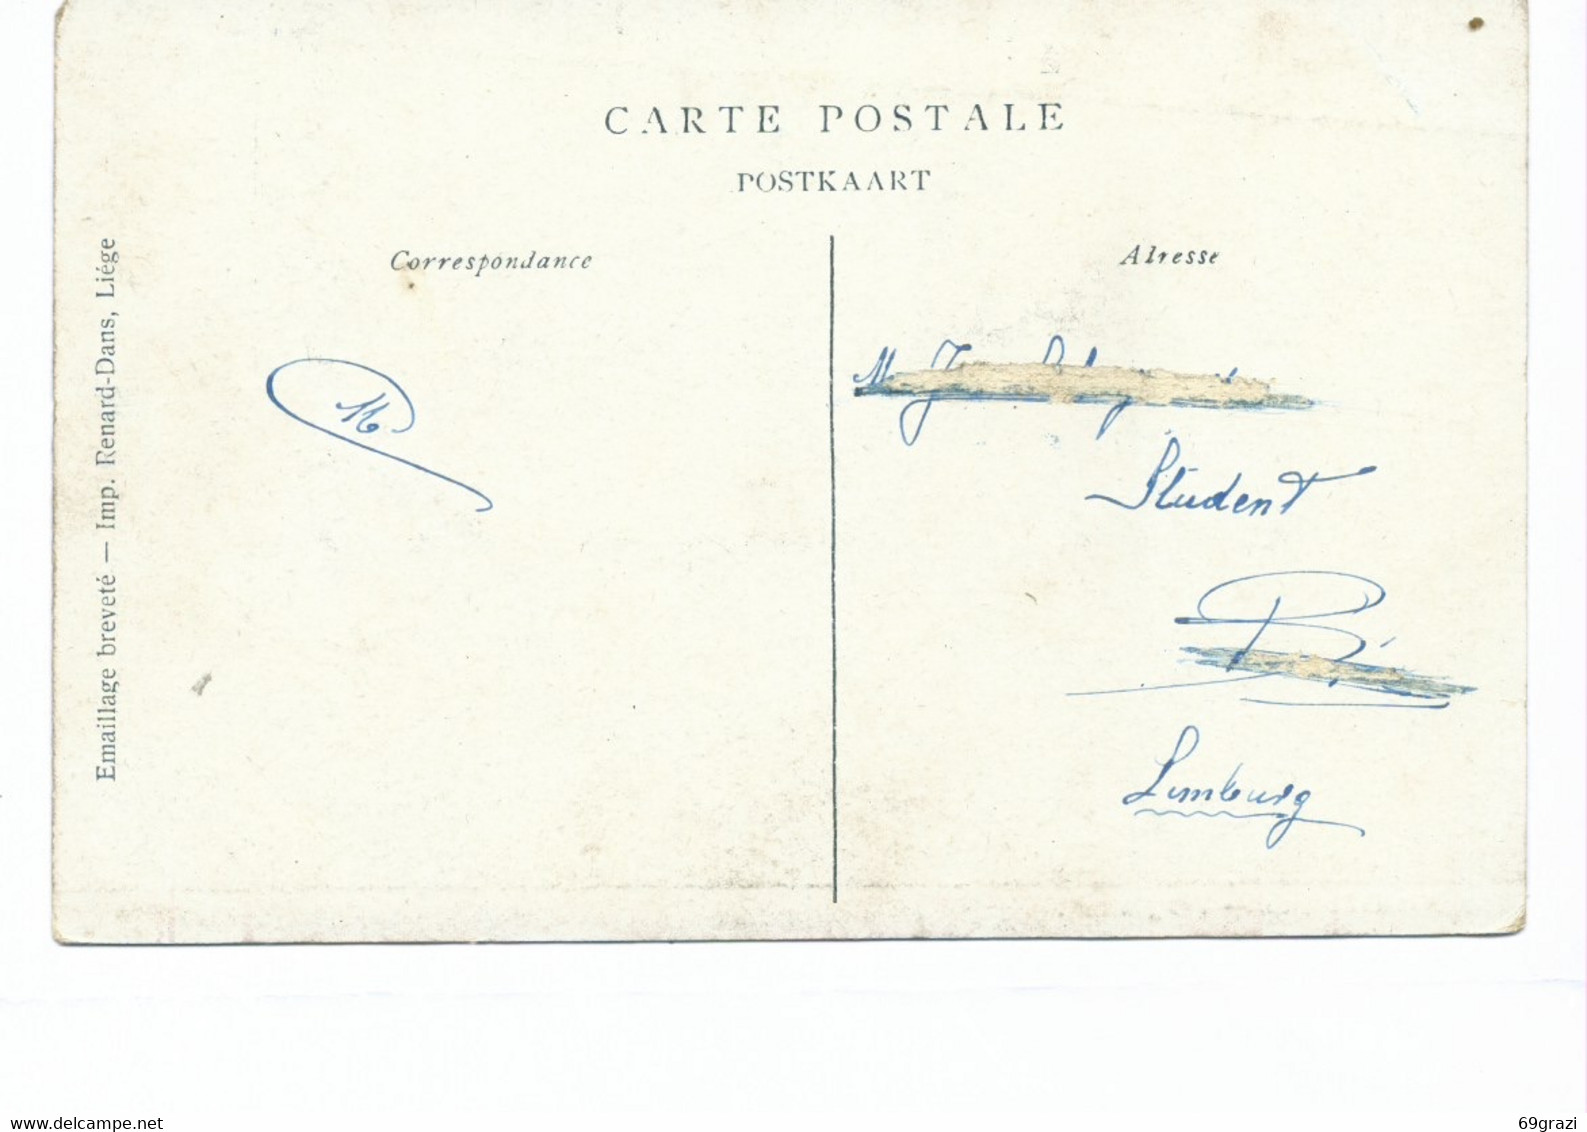 CARTE POSTALE
POSTKAART
Correspondance
Adresse
Emaillage breveté — Imp. Renard-Dans, Liége
M
M
Student
B
Limburg
www.delcampe.net
69grazi